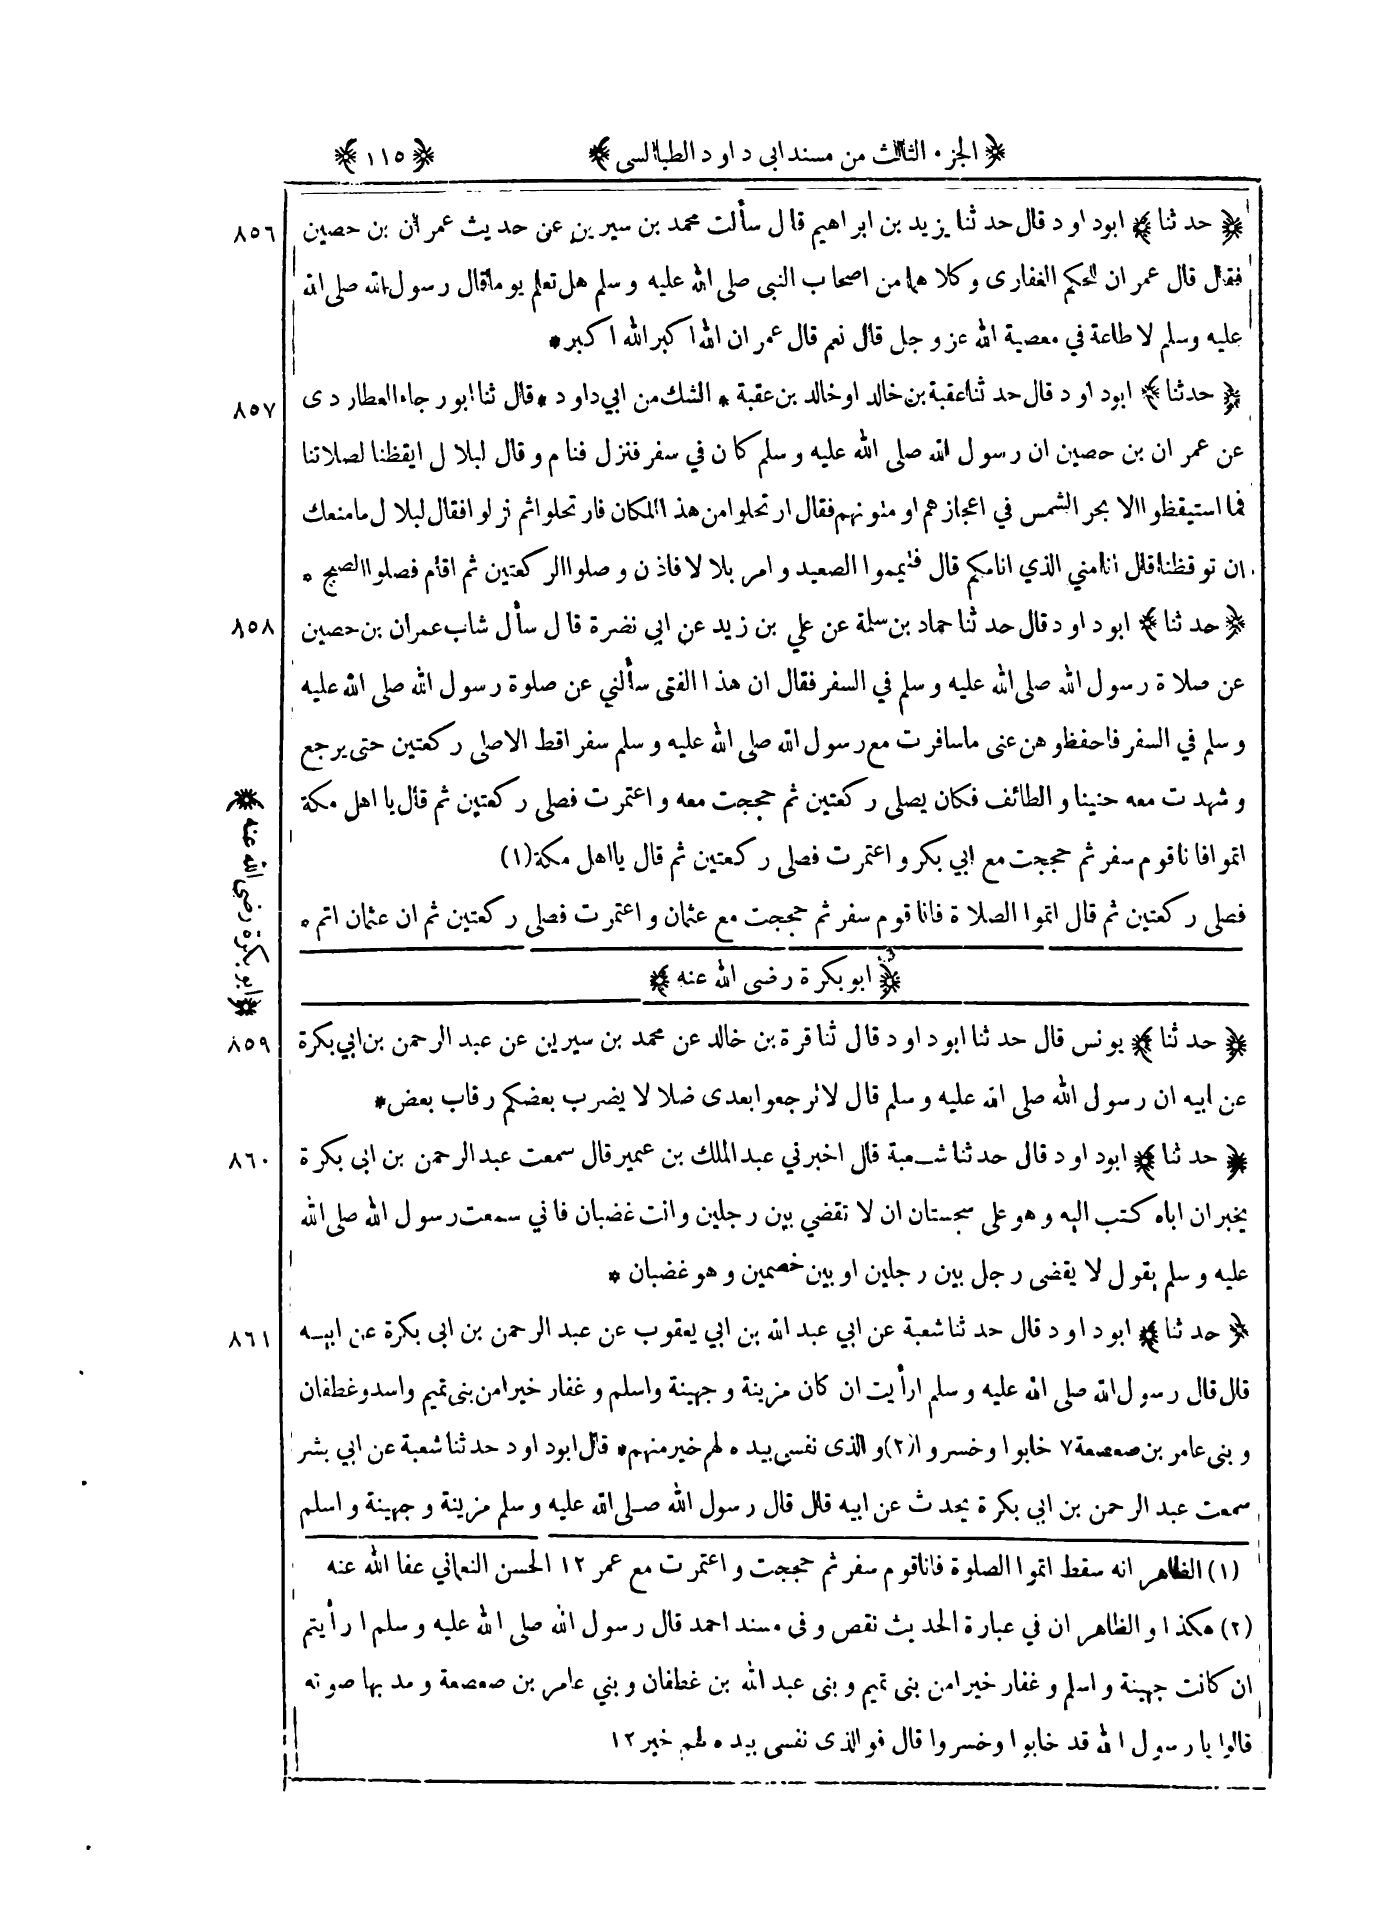 ﴿ الجزء الثالث من مسند ابى داود الطيالسى ﴾ ﴿ ١١٥ ﴾
﴿ حدثنا ﴾ ابوداود قال حدثنا يزيد بن ابراهيم قال سألت محمد بن سيرين عن حديث عمران بن حصين ٨٥٦
فقال قال عمران للحكم الغفارى وكلاهما من اصحاب النبى صلى الله عليه وسلم هل تعلم يوما قال رسول الله صلى الله
عليه وسلم لا طاعة في معصية الله عز وجل قال نعم قال عمران الله اكبر الله اكبر *
﴿ حدثنا ﴾ ابوداود قال حدثنا عقبة بن خالد او خالد بن عقبة * الشك من ابي داود * قال ثنا ابو رجاء العطاردى ٨٥٧
عن عمران بن حصين ان رسول الله صلى الله عليه وسلم كان في سفر فنزل فنام وقال لبلال ايقظنا لصلاتنا
فما استيقظوا الا بحر الشمس في اعجازهم او متونهم فقال ارتحلوا من هذا المكان فارتحلوا ثم نزلوا فقال لبلال ما منعك
ان توقظنا قال انامني الذي انامكم قال فتيمموا الصعيد وامر بلالا فاذن وصلوا الركعتين ثم اقام فصلوا الصبح *
﴿ حدثنا ﴾ ابوداود قال حدثنا حماد بن سلمة عن علي بن زيد عن ابي نضرة قال سأل شاب عمران بن حصين ٨٥٨
عن صلاة رسول الله صلى الله عليه وسلم في السفر فقال ان هذا الفتى سألني عن صلوة رسول الله صلى الله عليه
وسلم في السفر فاحفظوهن عنى ما سافرت مع رسول الله صلى الله عليه وسلم سفرا قط الا صلى ركعتين حتى يرجع
وشهدت معه حنينا والطائف فكان يصلى ركعتين ثم حججت معه واعتمرت فصلى ركعتين ثم قال يا اهل مكة
اتموا فانا قوم سفر ثم حججت مع ابي بكر واعتمرت فصلى ركعتين ثم قال يا اهل مكة (١)
فصلى ركعتين ثم قال اتموا الصلاة فانا قوم سفر ثم حججت مع عثمان واعتمرت فصلى ركعتين ثم ان عثمان اتم *
﴿ ابوبكرة رضى الله عنه ﴾
﴿ ابوبكرة رضى الله عنه ﴾
﴿ حدثنا ﴾ يونس قال حدثنا ابوداود قال ثنا قرة بن خالد عن محمد بن سيرين عن عبد الرحمن بن ابي بكرة ٨٥٩
عن ابيه ان رسول الله صلى الله عليه وسلم قال لا ترجعوا بعدى ضلالا يضرب بعضكم رقاب بعض *
﴿ حدثنا ﴾ ابوداود قال حدثنا شعبة قال اخبرني عبد الملك بن عمير قال سمعت عبد الرحمن بن ابى بكرة ٨٦٠
يخبر ان اباه كتب اليه وهو على سجستان ان لا تقضي بين رجلين وانت غضبان فاني سمعت رسول الله صلى الله
عليه وسلم يقول لا يقضى رجل بين رجلين او بين خصمين وهو غضبان *
﴿ حدثنا ﴾ ابوداود قال حدثنا شعبة عن ابي عبد الله بن ابي يعقوب عن عبد الرحمن بن ابى بكرة عن ابيه ٨٦١
قال قال رسول الله صلى الله عليه وسلم ارأيت ان كان مزينة وجهينة واسلم وغفار خيرا من بنى تميم واسد وغطفان
وبنى عامر بن صعصعة ٧ خابوا وخسروا (٢) والذى نفسى بيده لهم خير منهم * قال ابوداود حدثنا شعبة عن ابي بشر
سمعت عبد الرحمن بن ابى بكرة يحدث عن ابيه قال قال رسول الله صلى الله عليه وسلم مزينة وجهينة واسلم
(١) الظاهر انه سقط اتموا الصلوة فانا قوم سفر ثم حججت واعتمرت مع عمر ١٢ الحسن النعماني عفا الله عنه
(٢) هكذا والظاهر ان في عبارة الحديث نقص وفى مسند احمد قال رسول الله صلى الله عليه وسلم ارأيتم
ان كانت جهينة واسلم وغفار خيرا من بنى تميم وبنى عبد الله بن غطفان وبني عامر بن صعصعة ومد بها صوته
قالوا يا رسول الله قد خابوا وخسروا قال فوالذى نفسى بيده لهم خير ١٢